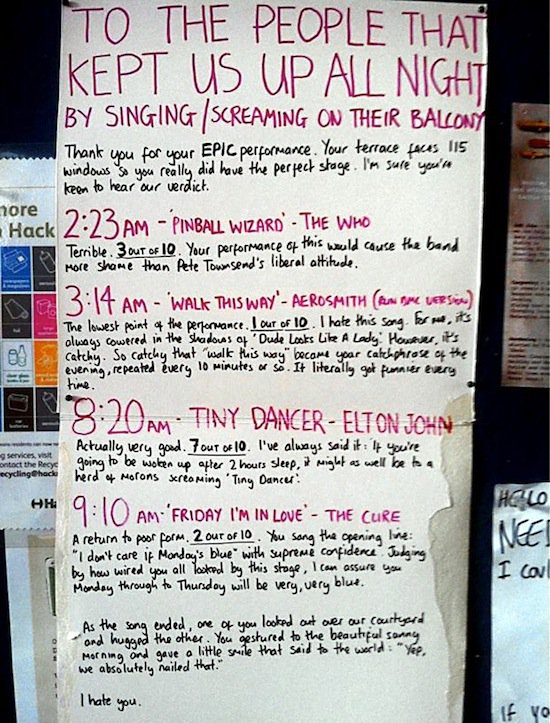 TO THE PEOPLE THAT
KEPT US UP ALL NIGHT
BY SINGING/SCREAMING ON THEIR BALCONY
Thank you for your EPIC performance. Your terrace faces 115
windows so you really did have the perfect stage. I'm sure you're
keen to hear our verdict.
2:23AM - 'PINBALL WIZARD' - THE WHO
Terrible. 3 OUT OF 10. Your performance of this would cause the band
more shame than Pete Townsend's liberal attitude.
3:14 AM - 'WALK THIS WAY' - AEROSMITH (RUN DMC VERSION)
The lowest point of the performance. 1 OUT OF 10. I hate this song. For me, it's
always cowered in the shadows of 'Dude Looks Like A Lady'. However, it's
catchy. So catchy that "walk this way" became your catchphrase of the
evening, repeated every 10 minutes or so. It literally got funnier every
time.
8:20AM - TINY DANCER - ELTON JOHN
Actually very good. 7 OUT OF 10. I've always said it: 'If you're
going to be woken up after 2 hours sleep, it might as well be to a
herd of morons screaming 'Tiny Dancer'.
9:10 AM - 'FRIDAY I'M IN LOVE' - THE CURE
A return to poor form. 2 OUT OF 10. You sang the opening line:
"I don't care if Monday's blue" with supreme confidence. Judging
by how wired you all looked by this stage, I can assure you
Monday through to Thursday will be very, very blue.
As the song ended, one of you looked out over our courtyard
and hugged the other. You gestured to the beautiful sunny
morning and gave a little smile that said to the world: "Yep,
we absolutely nailed that."
I hate you.
more
Hack
ng services, visit
ontact the Recyc
ecycling@hack
HELLO
NEE
I
If yo